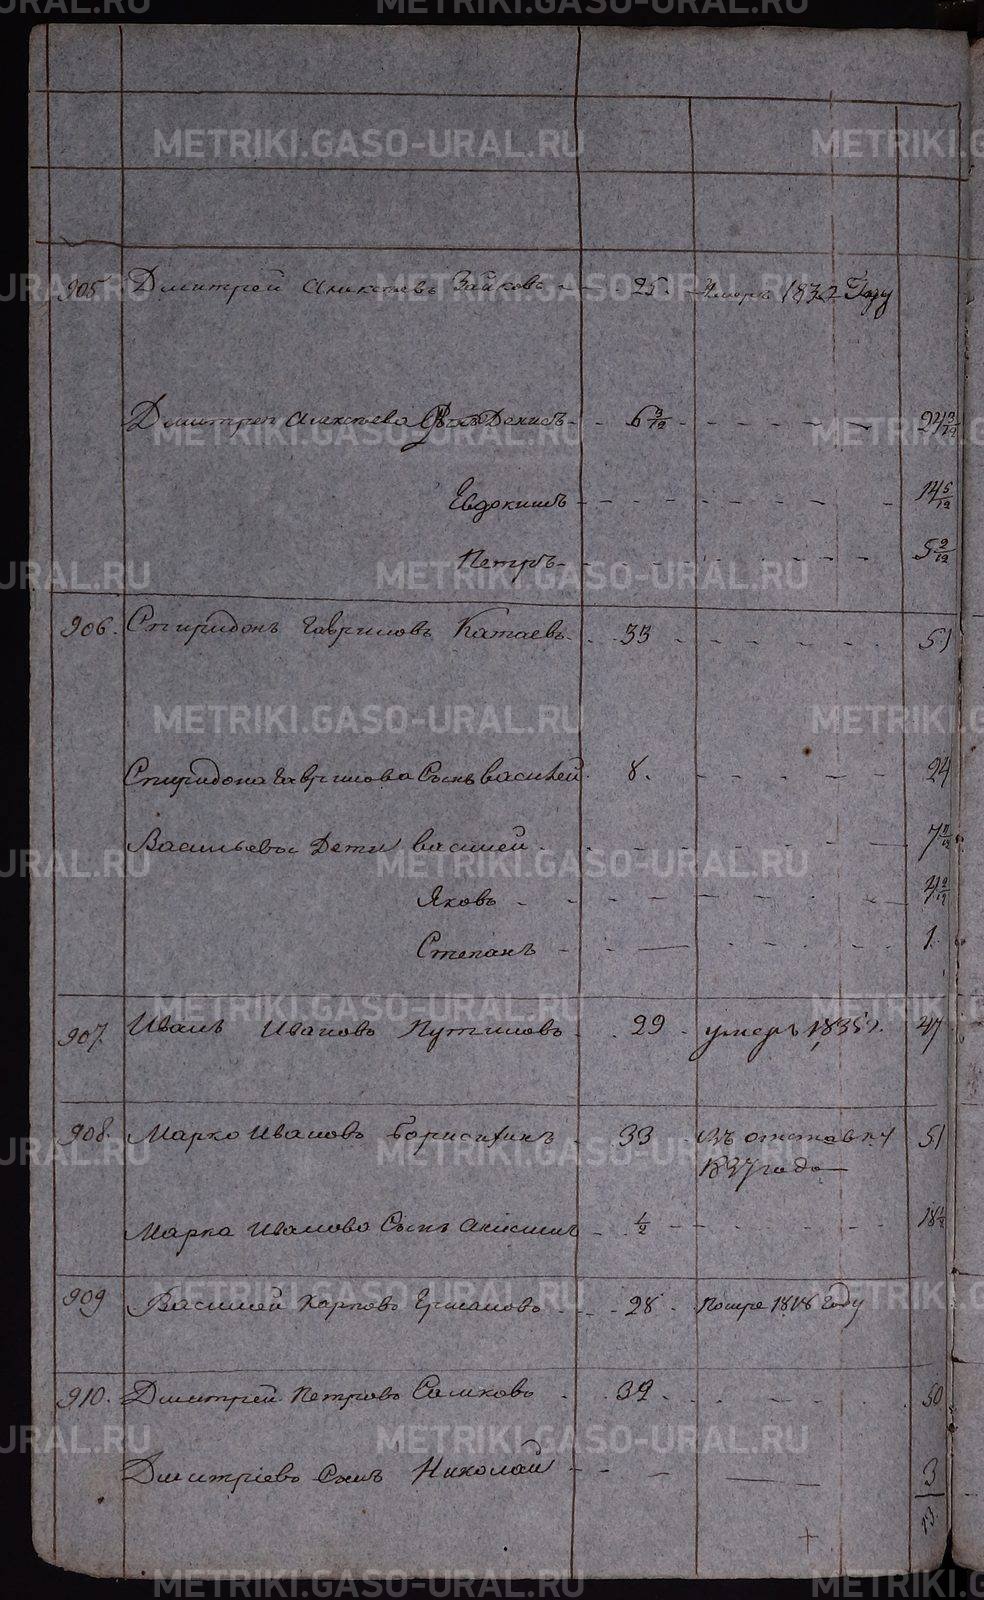 905. Дмитрей Алексеевъ Зайковъ 25. Умеръ 1832 Году
Дмитрея Алексеева Сынъ Денисъ 6 3/12 24 3/12
Евдокимъ 14 5/12
Петръ 5 2/12
906. Спиридонъ Гавриловъ Катаевъ 33 51
Спиридона Гаврилова Сынъ Василей 8. 24
Васильевы Дети Василей 7 11/12
Яковъ 4 2/12
Степанъ 1.
907. Иванъ Ивановъ Путиловъ 29 умеръ 1835 г. 47
908. Марко Ивановъ 33 Въ отставку 51
1837 года
Марка Иванова Сынъ Анисимъ 1/2 18 1/2
909 Василей Карповъ Ермаковъ 28 1818 Году
910. Дмитрей Петровъ 39 50
Дмитріевъ Сынъ Николай 3
13.
METRIKI.GASO-URAL.RU